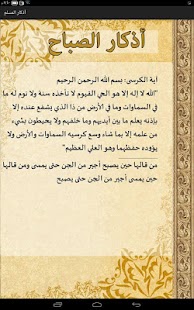 أذكار المسلم
أذكار الصباح
آية الكرسى: بسم الله الرحمن الرحيم
"الله لا إله إلا هو الحي القيوم لا تأخذه سنة ولا نوم له ما
في السماوات وما في الأرض من ذا الذي يشفع عنده إلا
بإذنه يعلم ما بين أيديهم وما خلفهم ولا يحيطون بشيء
من علمه إلا بما شاء وسع كرسيه السماوات والأرض ولا
يؤوده حفظهما وهو العلي العظيم"
من قالها حين يصبح أجير من الجن حتى يمسى ومن قالها
حين يمسى أجير من الجن حتى يصبح